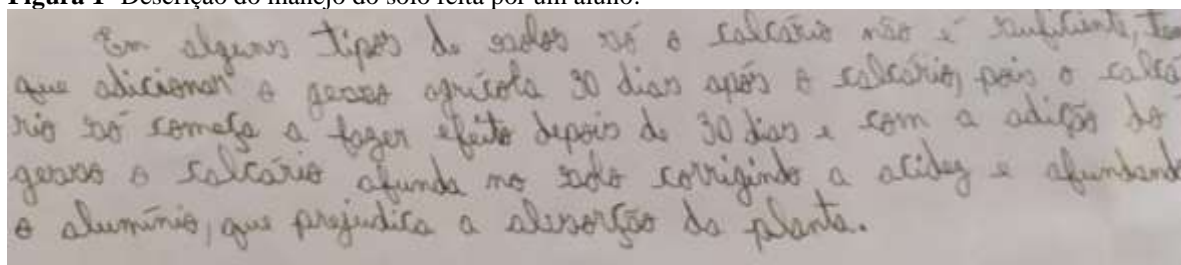 Figura 1- Descrição do manejo do solo feita por um aluno.
Em alguns tipos de solos só o calcário não é suficiente, tem
que adicionar o gesso agrícola 30 dias após o calcário, pois o calcá
rio só começa a fazer efeito depois de 30 dias e com a adição do
gesso o calcário afunda no solo corrigindo a acidez e afundando
o alumínio, que prejudica a absorção da planta.